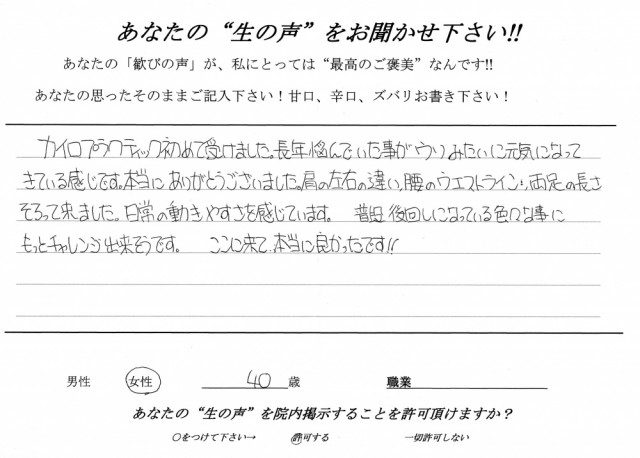 あなたの“生の声”をお聞かせ下さい!!
あなたの「歓びの声」が、私にとっては“最高のご褒美”なんです!!
あなたの思ったそのままご記入下さい！甘口、辛口、ズバリお書き下さい！
カイロプラクティック初めて受けました。長年悩んでいた事がウソみたいに元気になって
きている感じです。本当にありがとうございました。肩の左右の違い、腰のウエストライン、両足の長さ
そろって来ました。日常の動きやすさを感じています。 後回しになっている色々な事に
もっとチャレンジ出来そうです。 ここに来て、本当に良かったです!!
男性 女性 40 歳 職業
あなたの“生の声”を院内掲示することを許可頂けますか？
○をつけて下さい→ 許可する 一切許可しない